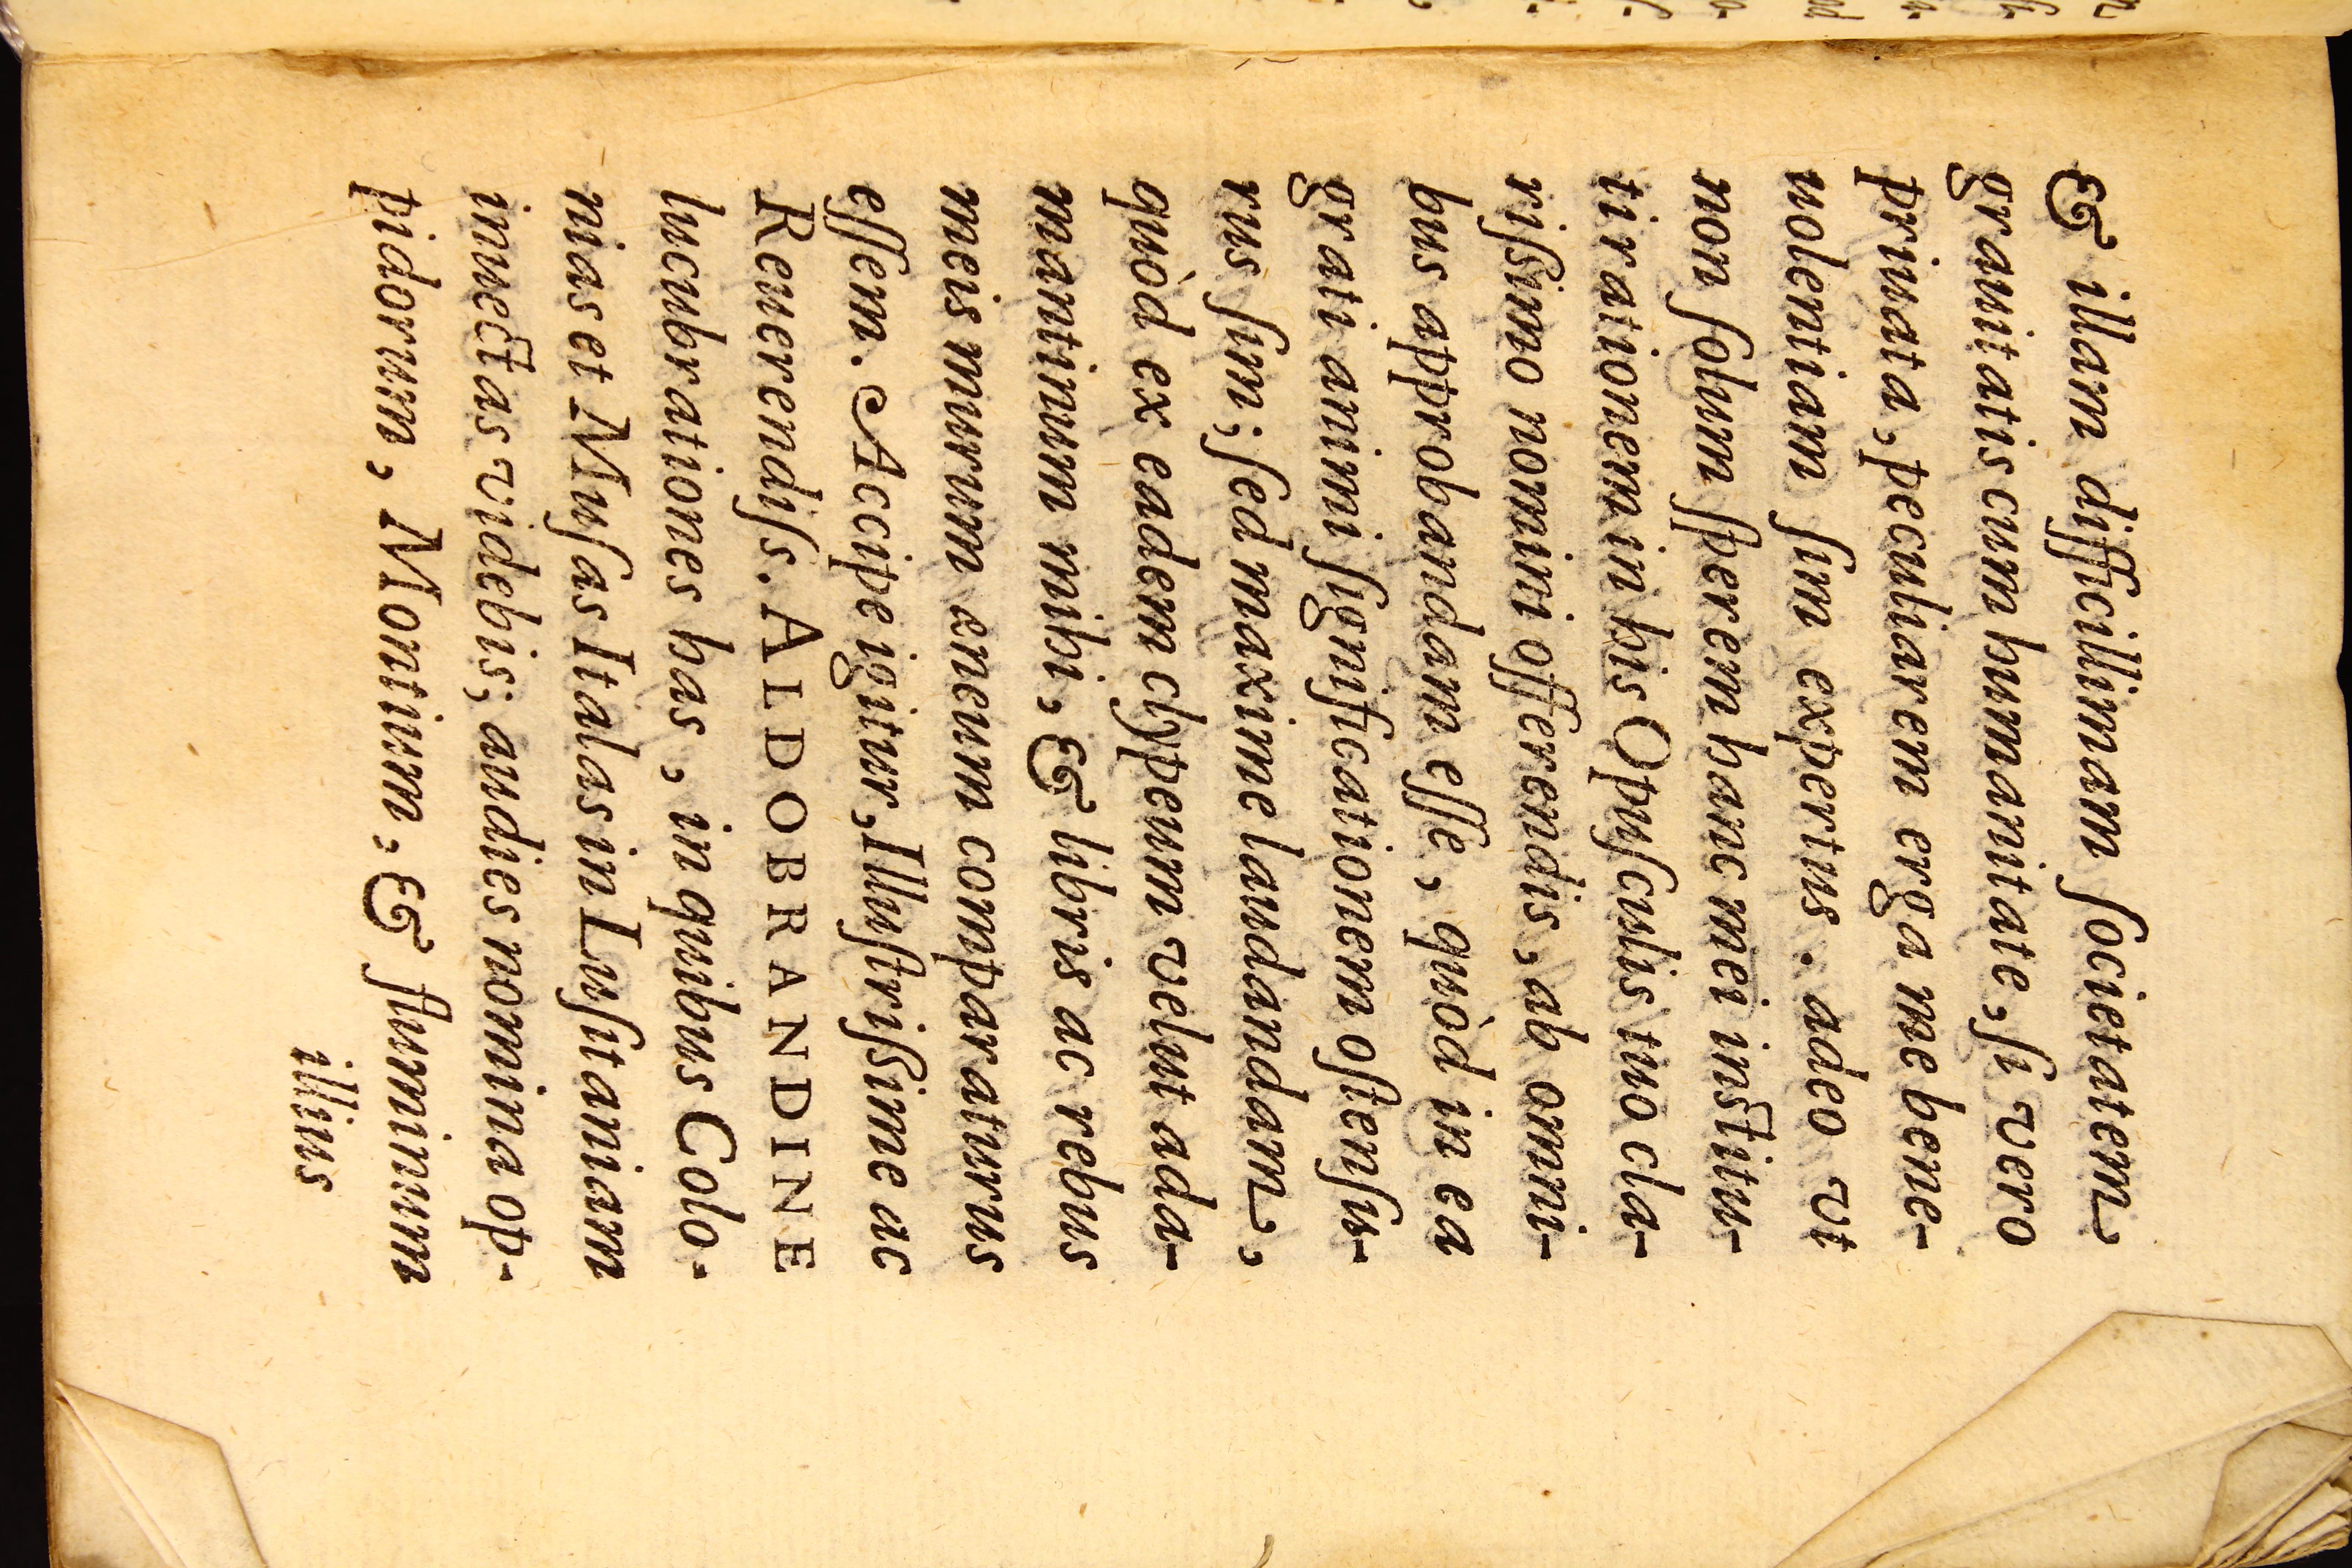 & illam difficillimam ſocietatem
grauitatis cum humanitate, ſi vero
priuata, peculiarem erga me bene-
uolentiam ſim expertus. adeo vt
non ſolum ſperem hanc mei inſtitu-
ti rationem in his Opuſculis tuo cla-
riſsimo nomini offerendis, ab omni-
bus approbandam eſſe, quòd in ea
grati animi ſignificationem oſtenſu-
rus ſim; ſed maxime laudandam,
quòd ex eadem clypeum velut ada-
mantinum mihi, & libris ac rebus
meis murum æneum comparaturus
eſſem. Accipe igitur, Illuſtriſsime ac
Reuerendiſs. ALDOBRANDINE
lucubrationes has, in quibus Colo-
nias et Muſas Italas in Luſitaniam
inuectas videbis; audies nomina op-
pidorum, Montium, & fluminum
illius